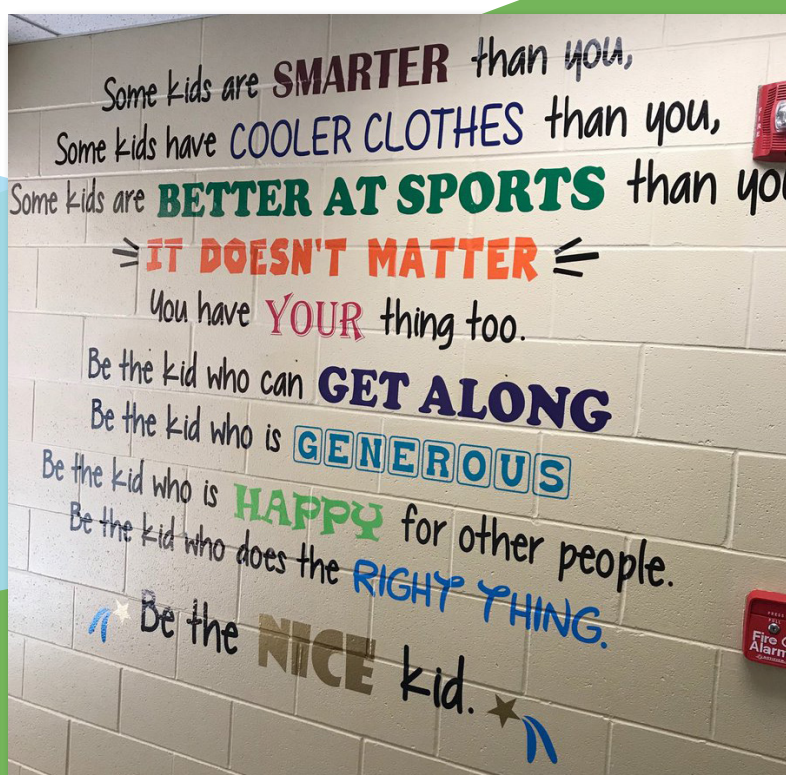 Some kids are SMARTER than you,
Some kids have COOLER CLOTHES than you,
Some kids are BETTER AT SPORTS than
IT DOESN'T MATTER
You have YOUR thing too.
Be the kid who can GET ALONG
Be the kid who is GENEROUS
Be the kid who is HAPPY for other people.
Be the kid who does the RIGHT THING.
Be the NICE kid.
Fire